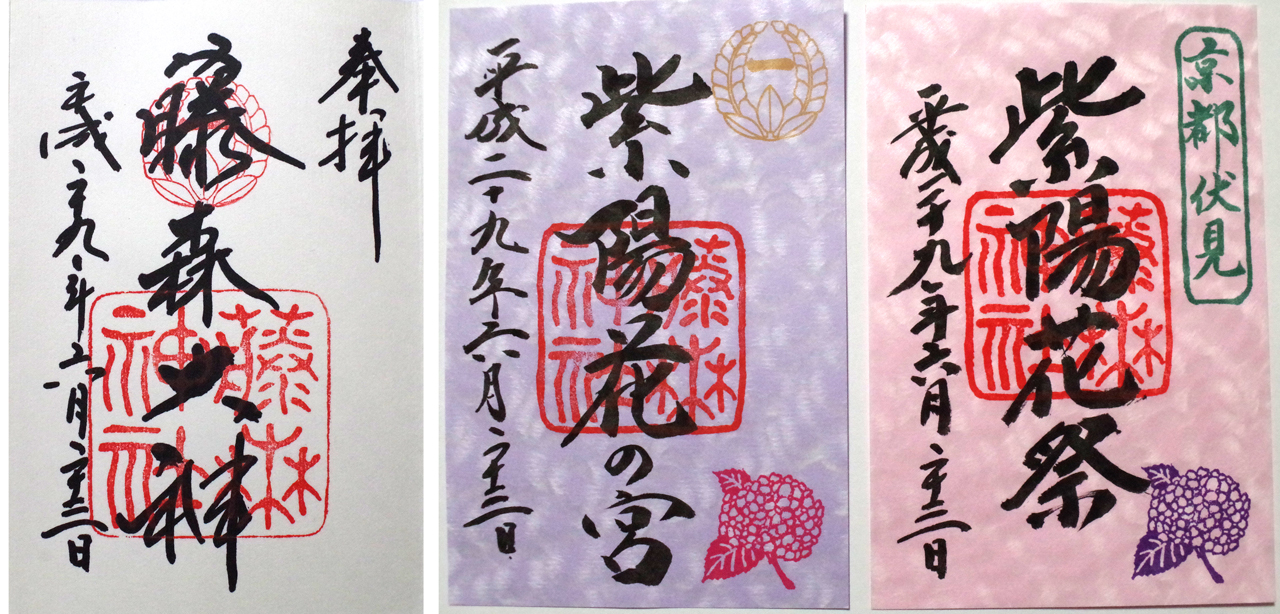 奉拝
藤森大神
平成二十九年六月二十三日
藤森
神社
一
紫陽花の宮
平成二十九年六月二十三日
藤森
神社
京都伏見
紫陽花祭
平成二十九年六月二十三日
藤森
神社